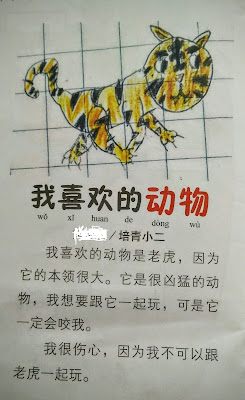 我喜欢的动物
wǒ xǐ huan de dòng wù
/培青小二
我喜欢的动物是老虎，因为
它的本领很大。它是很凶猛的动
物，我想要跟它一起玩，可是它
一定会咬我。
我很伤心，因为我不可以跟
老虎一起玩。